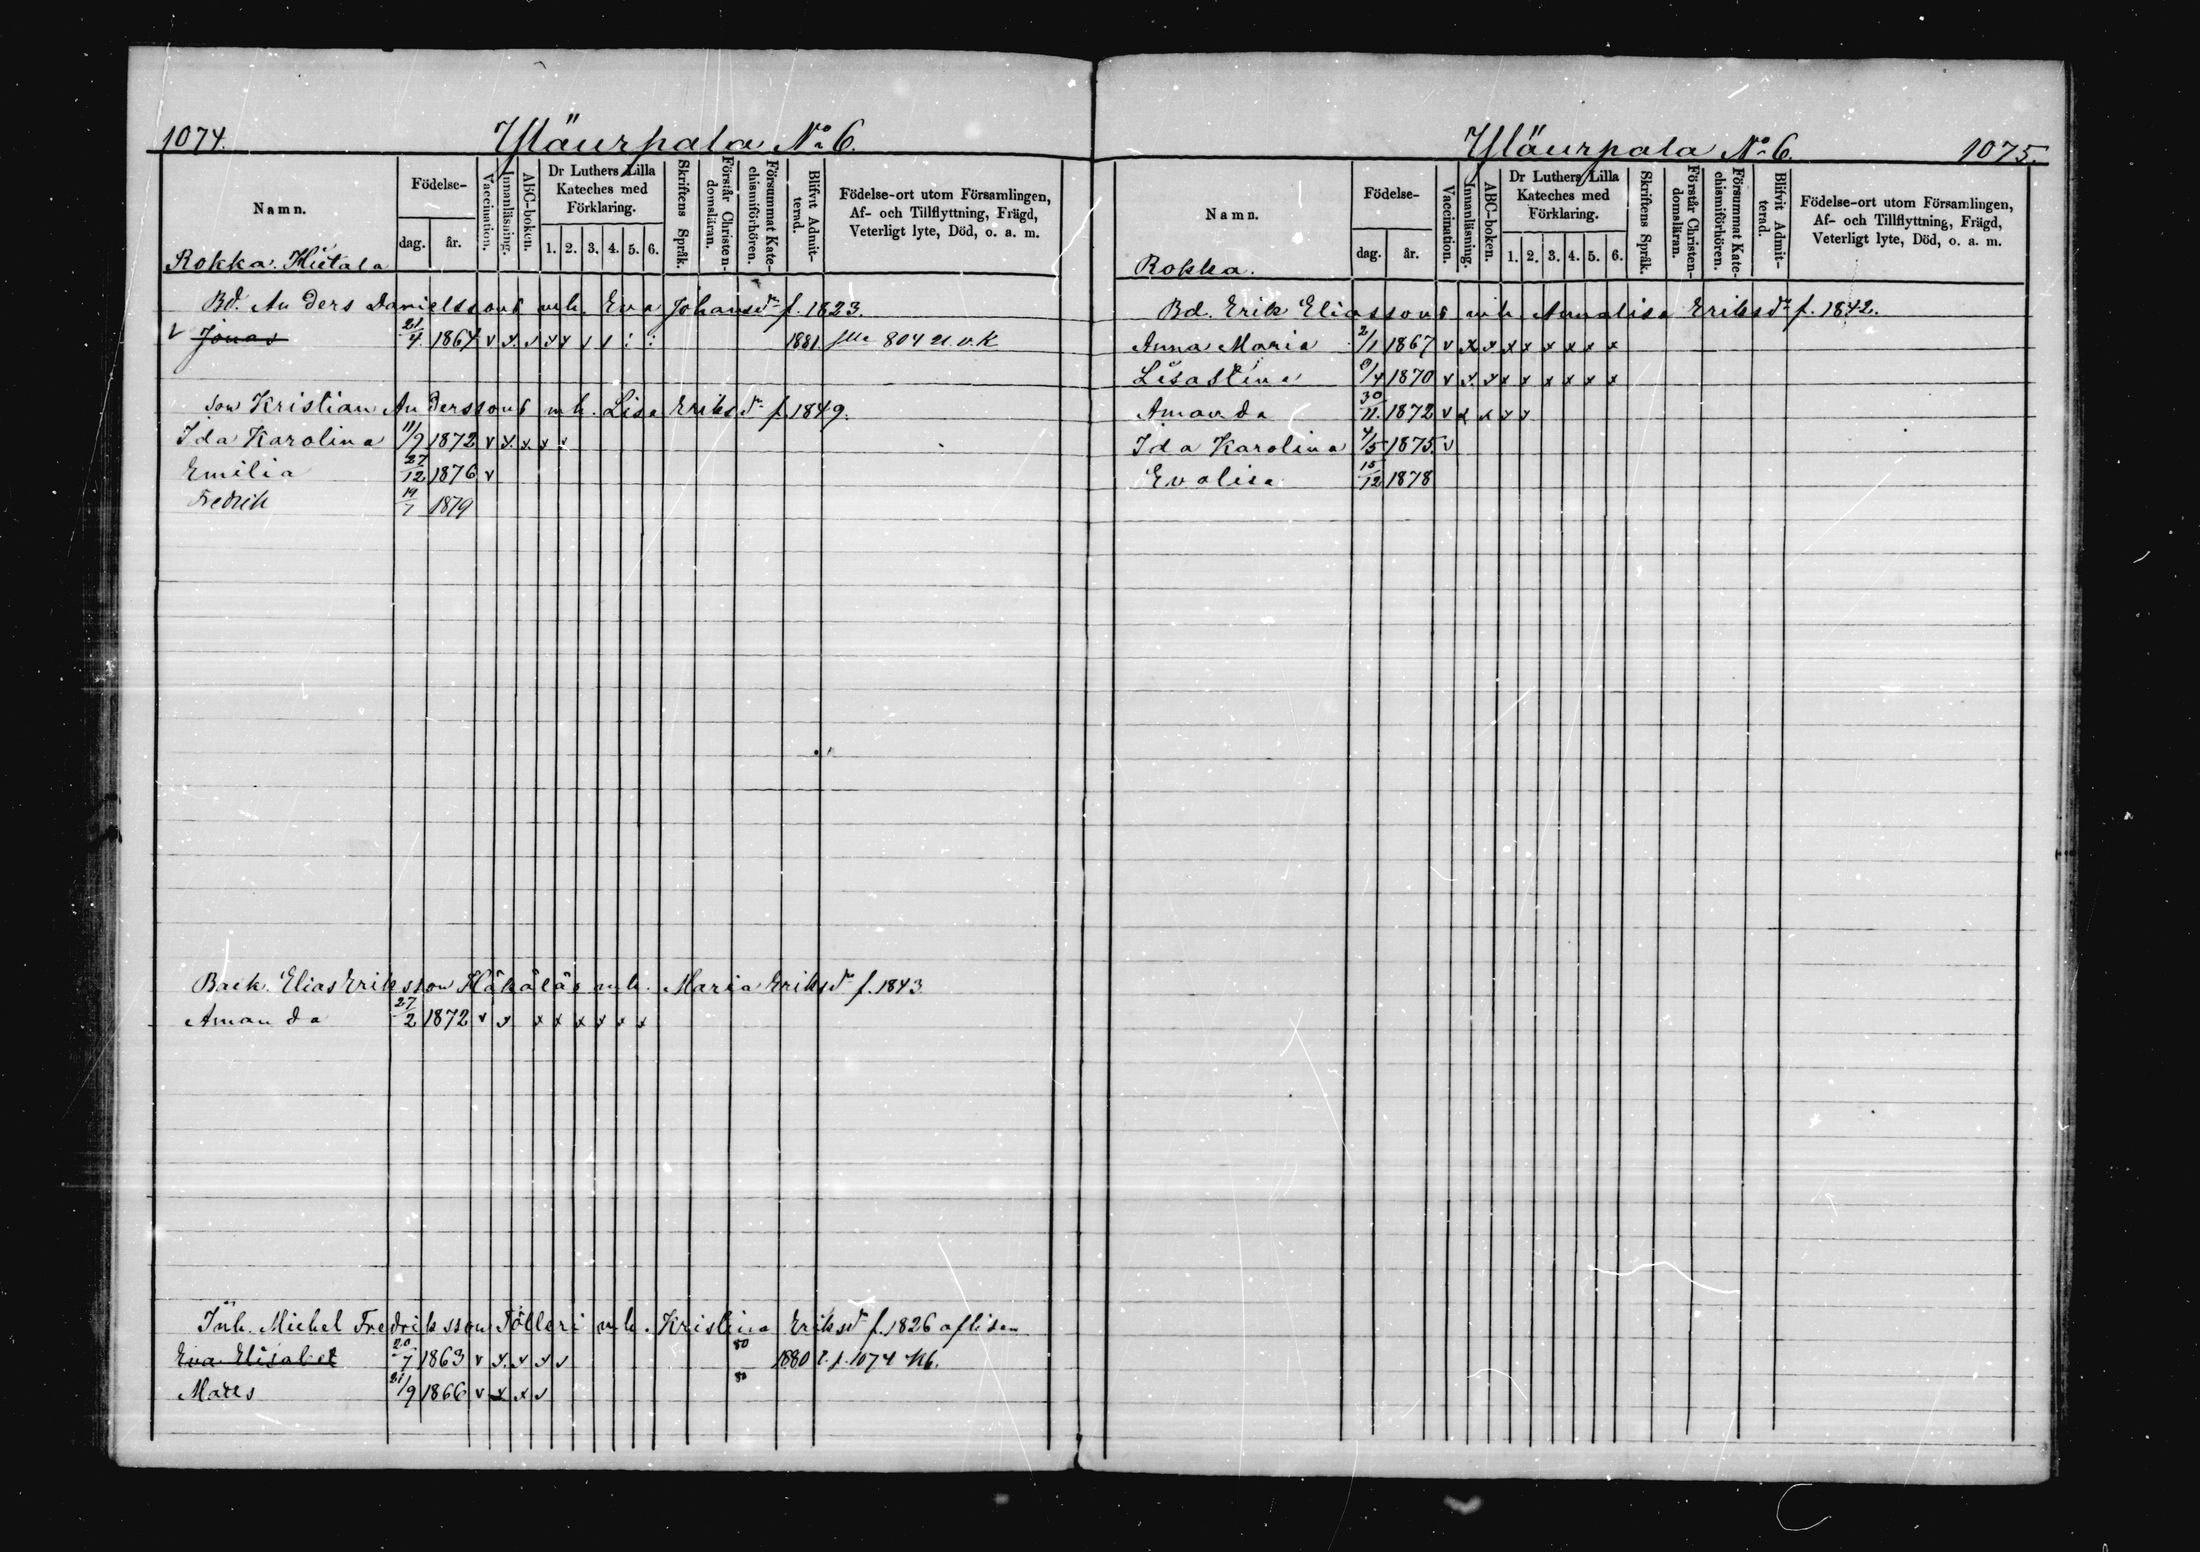 1074. Yläurpala No 6.
Namn. Födelse- dag. år. Vaccination. Innanläsning. ABC-boken. Dr Luthers Lilla Kateches med Förklaring. 1. 2. 3. 4. 5. 6. Skriftens Språk. Förstår Christendomsläran. Försummat Katechismiförhören. Blifvit Admitterad. Födelse-ort utom Församlingen, Af- och Tillflyttning, Frägd, Veterligt lyte, Död, o. a. m.
Rokka. Hietala
Bd. Anders Danielssons mh. Eva Johansdr f. 1823.
v Jonas 21/4 1864 v x v v v v v 1881 804 u. K
Son Kristian Anderssons mh. Lisa Eriksdr f. 1849.
Ida Karolina 11/9 1872 v x. x x v
Emilia 27/12 1876 v
Fredrik 19/7 1879
Back. Elias Eriksson mh. Maria Eriksdr f. 1843
Amanda 27/2 1872 v x x x x x x x
Inh. Michel Fredriksson Tölleri mh. Kristina Eriksdr f. 1826 afliden
Eva Elisabet 20/7 1863 v x. x x v 80 1880 1074 Kb.
Matts 21/9 1866 v x x v 80
Yläurpala No 6. 1075.
Namn. Födelse- dag. år. Vaccination. Innanläsning. ABC-boken. Dr Luthers Lilla Kateches med Förklaring. 1. 2. 3. 4. 5. 6. Skriftens Språk. Förstår Christendomsläran. Försummat Katechismiförhören. Blifvit Admitterad. Födelse-ort utom Församlingen, Af- och Tillflyttning, Frägd, Veterligt lyte, Död, o. a. m.
Rokka.
Bd. Erik Eliassons mh. Annalisa Eriksdr f. 1842.
Anna Maria 2/1 1867 v x x x x x x x x
Lisastina 9/4 1870 v x x x x x x x x
Amanda 30/11 1872 v x x v v
Ida Karolina 4/5 1875. v
Evalisa 15/12 1878